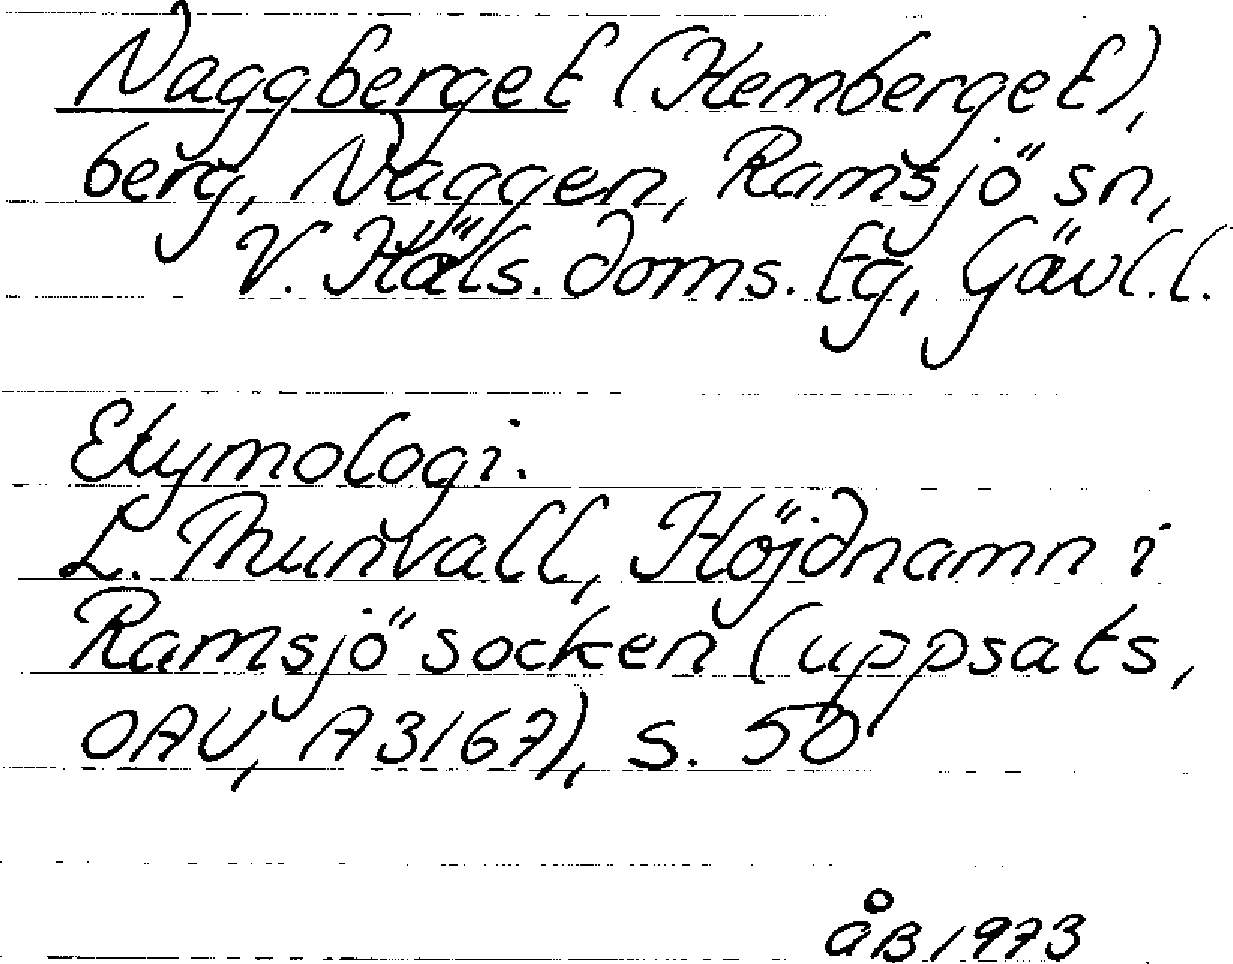 Naggberget (Hemberget),
berg, Naggen, Ramsjö sn,
V. Häls. doms. tg, Gävl.l.
Etymologi.
L. Thunvall, Höjdnamn i
Ramsjö socken (uppsats,
OAU, A3167), s. 50
åB 1973